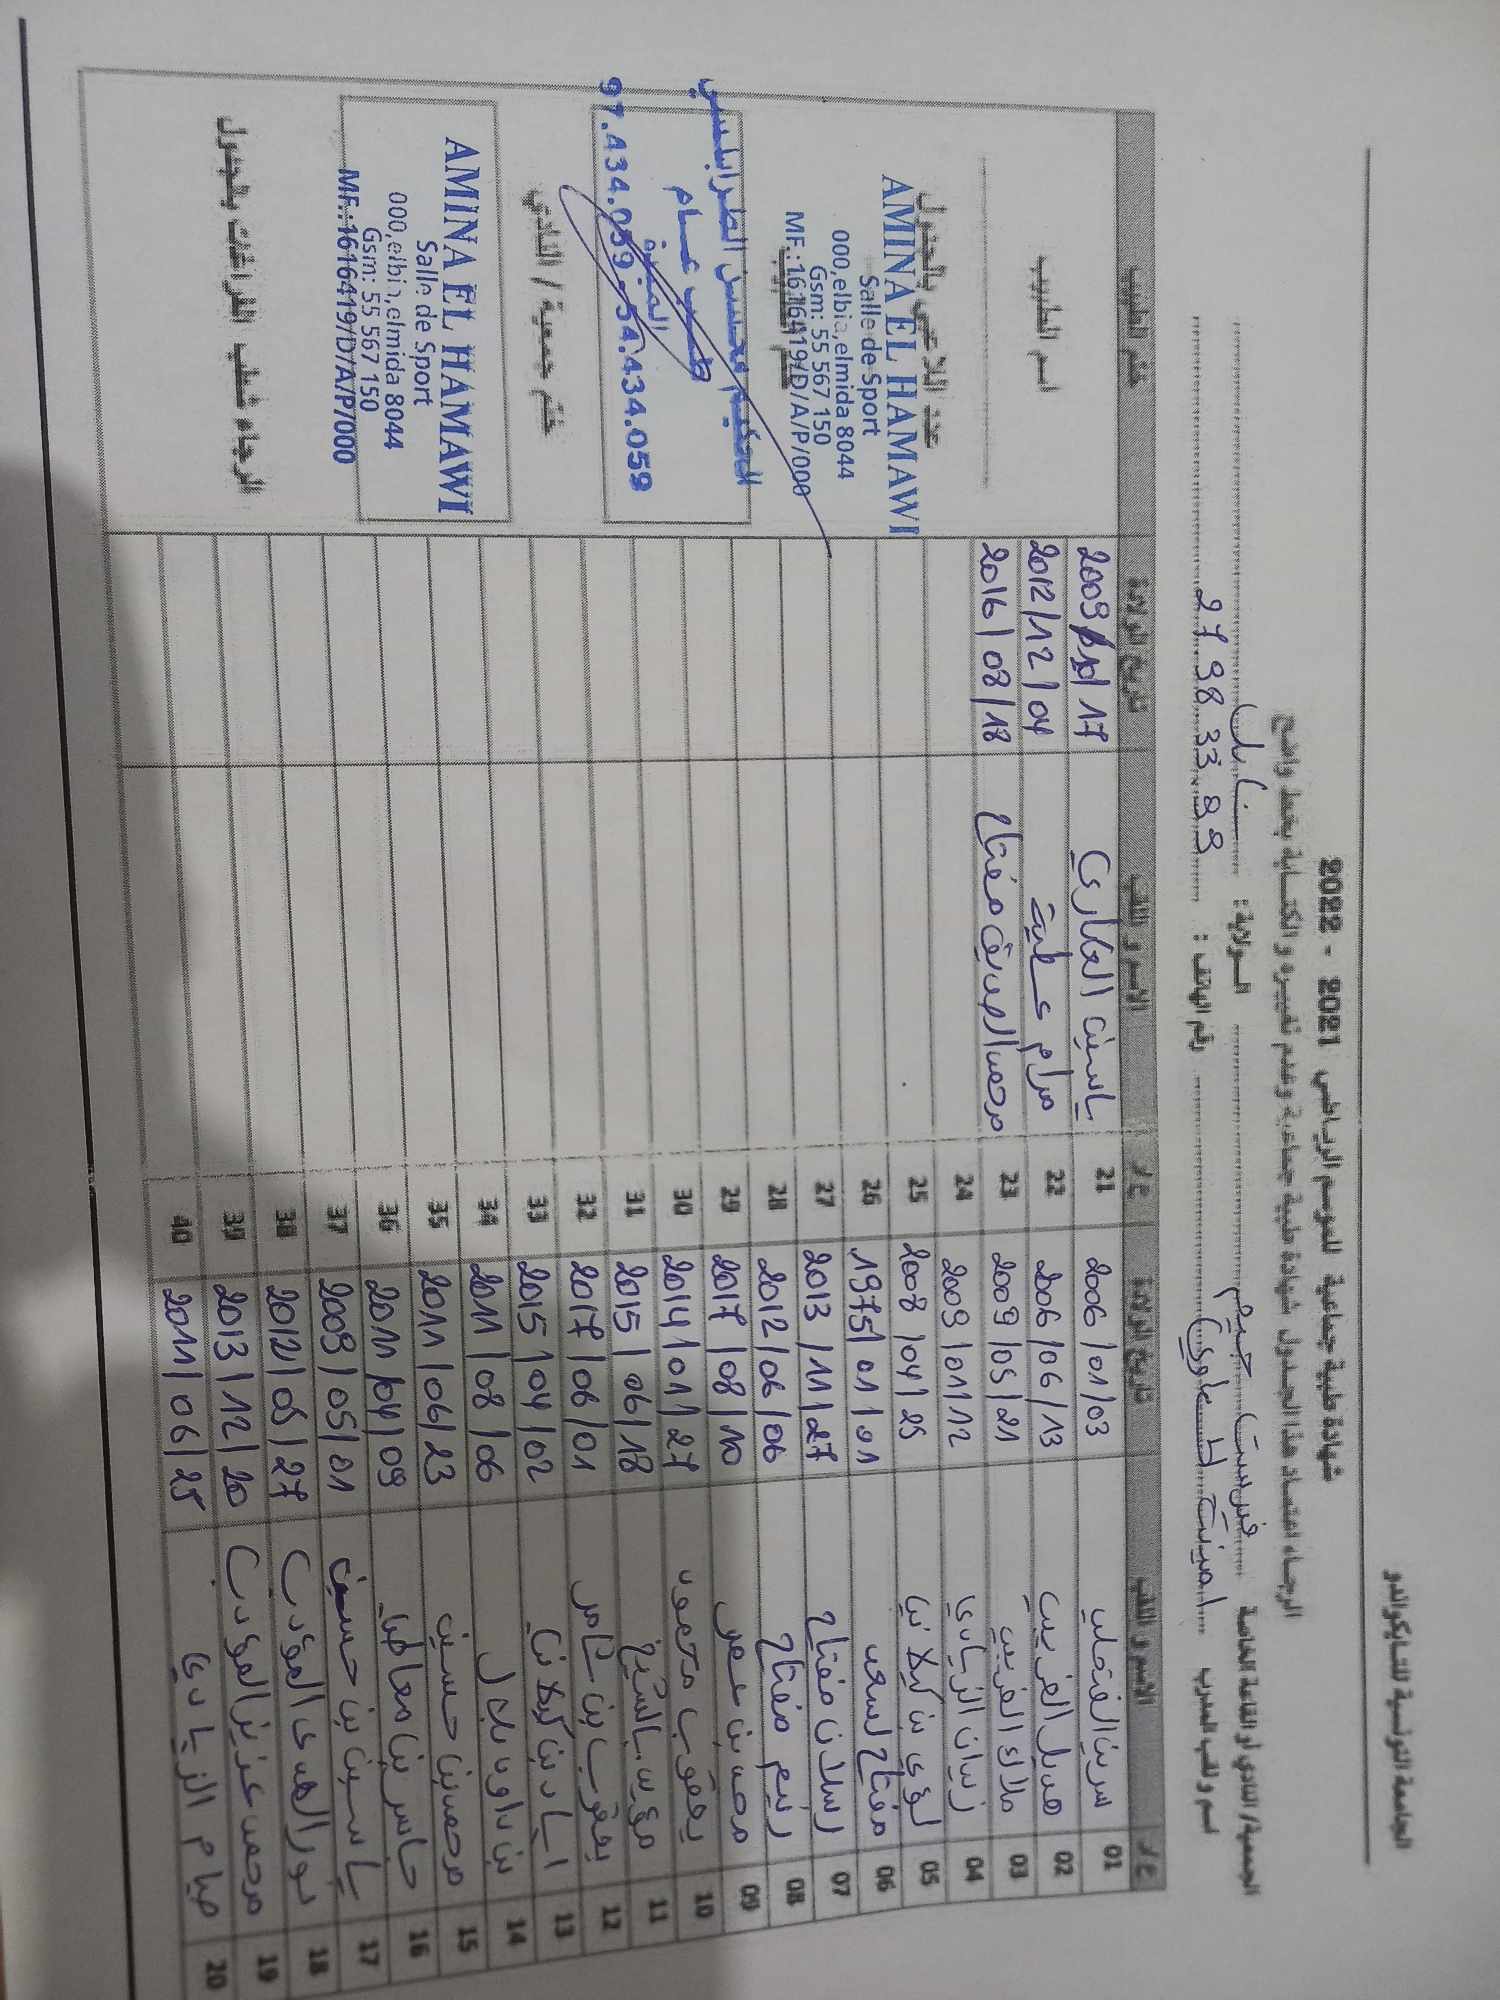 الجامعة التونسية للتايكواندو
شهادة طبية جماعية للموسم الرياضي 2021 - 2022
الرجاء اعتماد هذا الجدول شهادة طبية جماعية وعدم تغييره والكتابة بخط واضح
الجمعية/ النادي أو القاعة الخاصة فيرست جيم الولاية : نابل
اسم و لقب المدرب امينة الحماوي رقم الهاتف : 27 98 33 89
ع/ر الاسم و اللقب تاريخ الولادة ع/ر الاسم و اللقب تاريخ الولادة ختم الطبيب
01 سرين الفتحلي 2006/01/03 21 ياسين العكاري 2009/10/17
02 هديل الغريبي 2006/06/13 22 مرام عطية 2012/12/04
03 ملاك الغريبي 2009/05/21 23 محمد الصديق مفتاح 2016/08/18
04 زينان الزيادي 2009/01/12 24
05 لؤي بن كيلاني 2008/04/25 25
06 مفتاح لسعد 1975/01/01 26
07 رسلان مفتاح 2013/11/27 27
08 رنيم مفتاح 2012/06/06 28
09 محمد بن عمر 2017/08/10 29
10 يعقوب محمود 2014/01/27 30
11 مؤيد بالشيخ 2015/06/18 31
12 يعقوب بن عامر 2017/06/01 32
13 اياد بن كيلاني 2015/04/02 33
14 بن داود بلال 2011/08/06 34
15 محمد بن حسين 2011/06/23 35
16 جاسر بن معاطي 2011/04/09 36
17 ياسين بن حسين 2009/05/01 37
18 نور الهدى المؤدب 2012/05/27 38
19 محمد عزيز المؤدب 2013/12/20 39
20 هيام الزيادي 2011/06/25 40
اسم الطبيب
عدد اللاعبين بالجدول
AMINA EL HAMAWI
Salle de Sport
000,elbia,elmida 8044
Gsm: 55 567 150
MF.:1616419/D/A/P/000
ختم الطبيب
الحكيم محسن الطرابلسي
طبيب عـــام
الميدة
97.434.059 - 54.434.059
ختم جمعية / النادي
AMINA EL HAMAWI
Salle de Sport
000,elbia,elmida 8044
Gsm: 55 567 150
MF.:1616419/D/A/P/000
الرجاء شطب الفراغات بالجدول